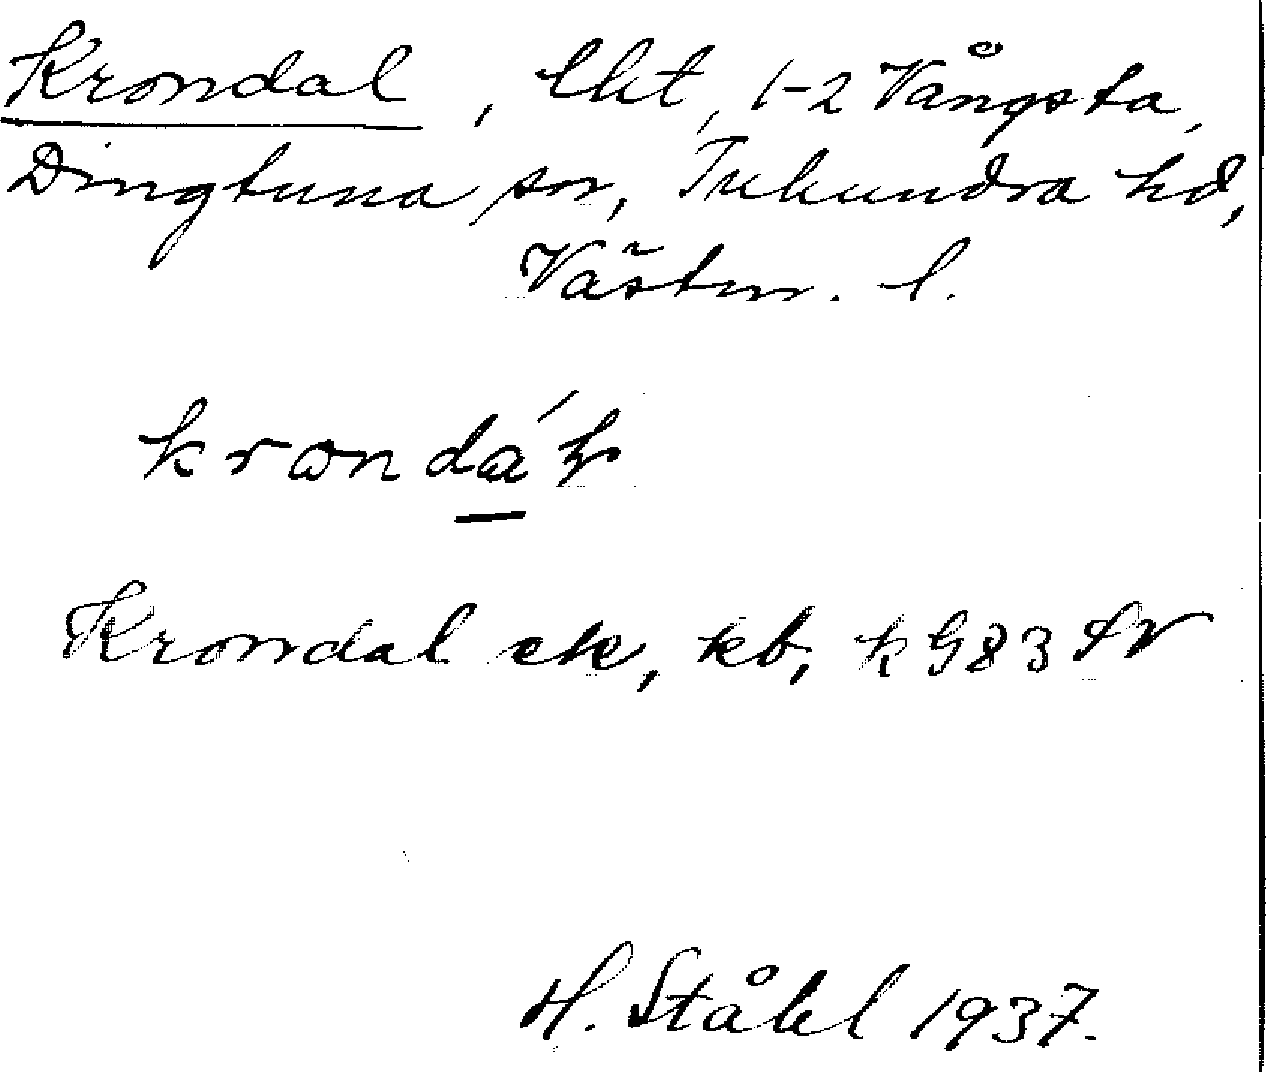 Krondal, lht, 1-2 Vångsta,
Dingtuna sn, Tuhundra hd,
Västm. l.
krondá
Krondal ek, kb, k G83 SV
H. Ståhl 1937.